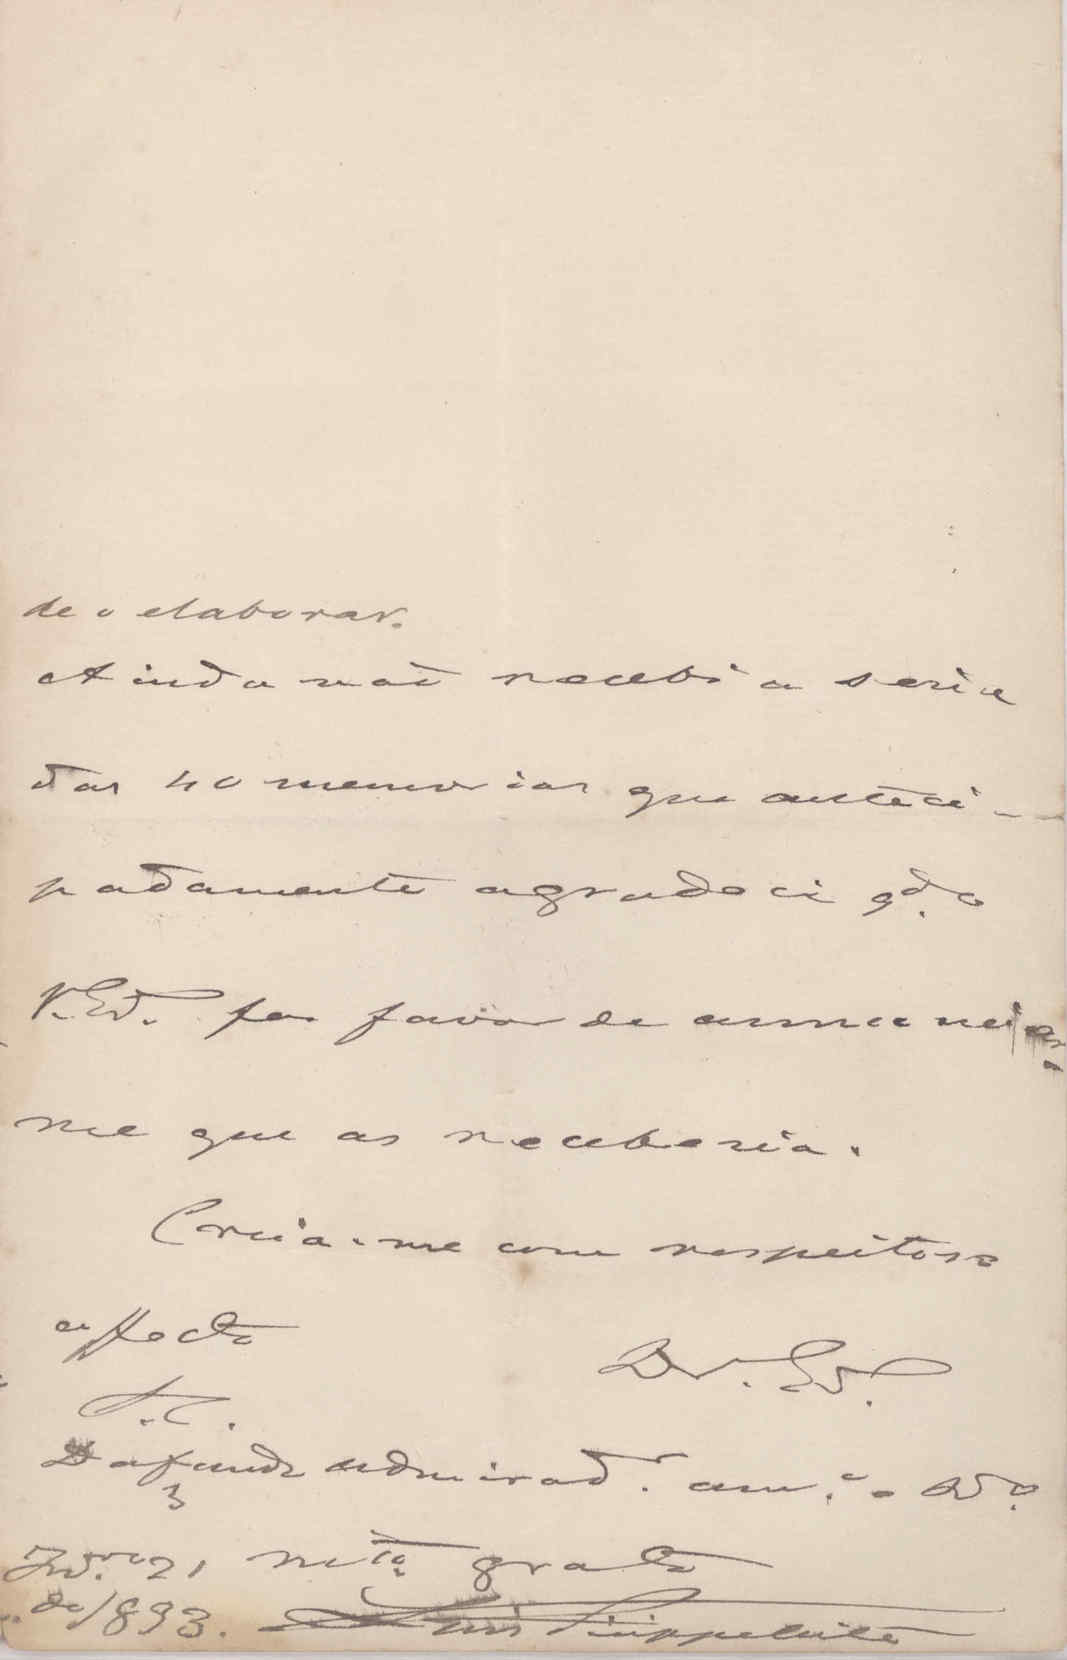 de o elaborar.
Ainda não recebi a serie
das 40 memorias que anteci-
padamente agradeci qdo.
V. Exa. fez favor de annunciar-
me que as receberia.
Creia-me com respeitoso
affecto
De V. Exa.
S. C.
Dafundo admirador. amo. e
21 mto. grato
de 1893. Luis